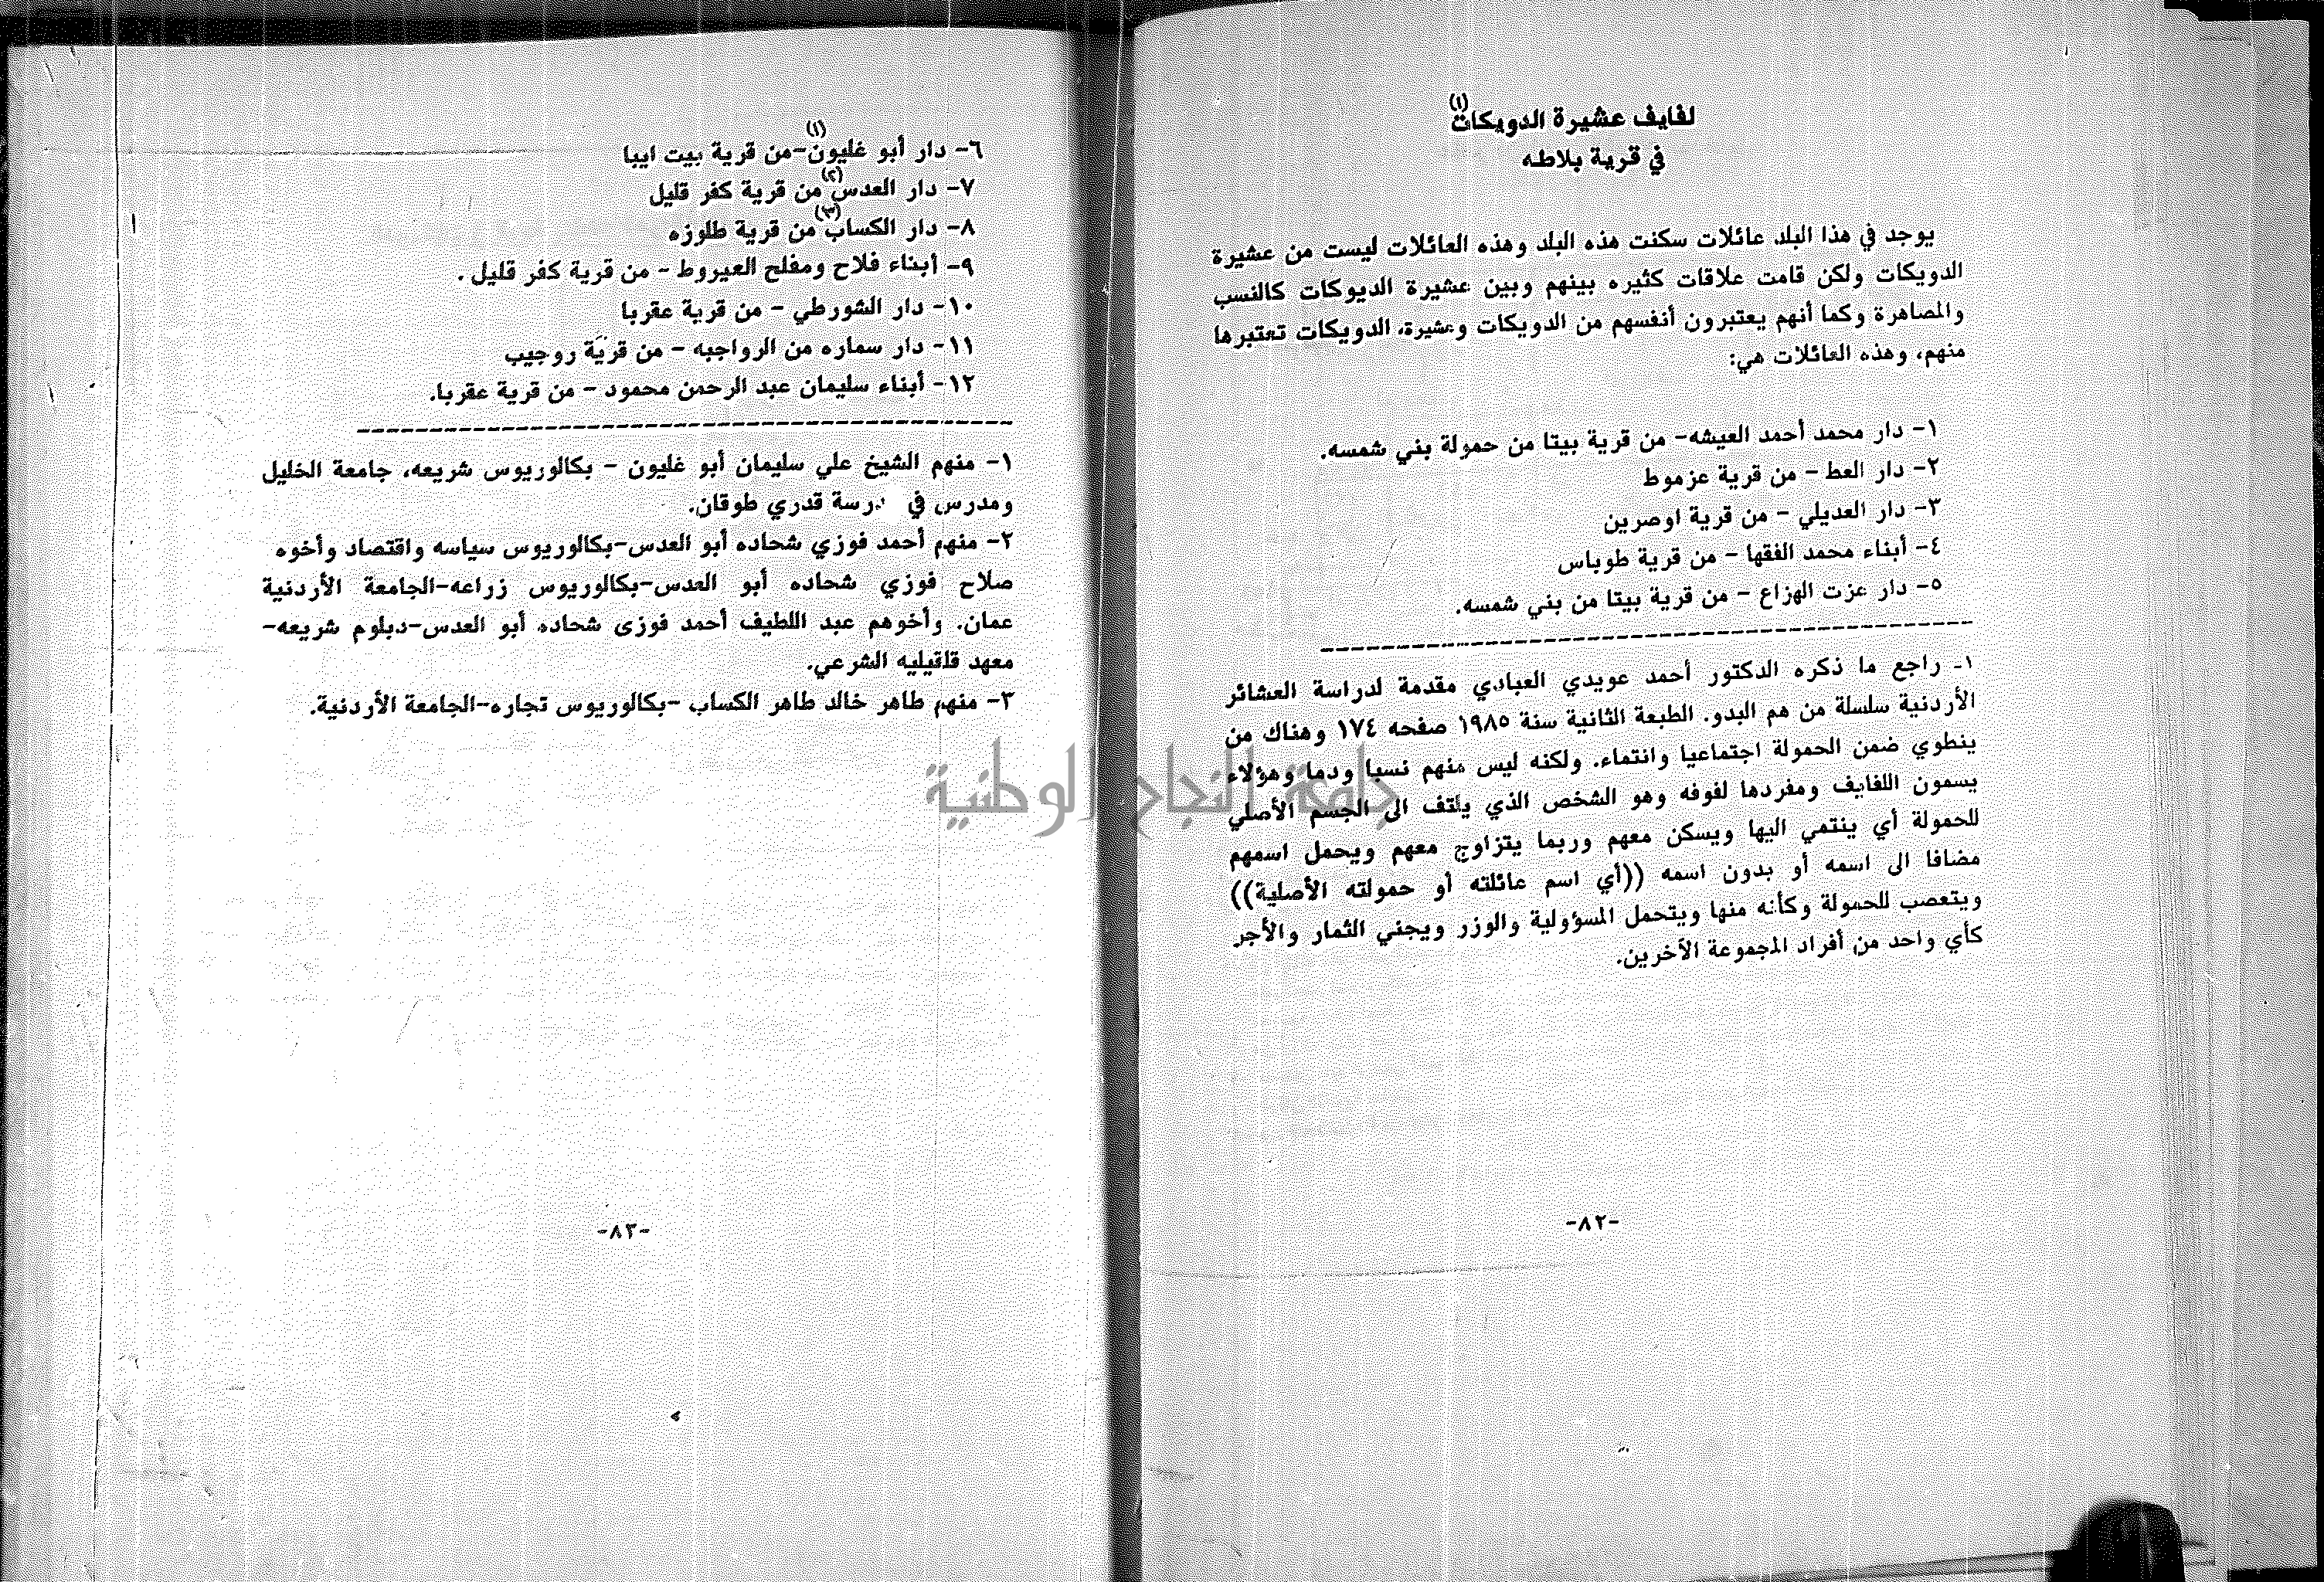 لفايف عشيرة الدويكات(١)
في قرية بلاطه
يوجد في هذا البلد عائلات سكنت هذه البلد وهذه العائلات ليست من عشيرة
الدويكات ولكن قامت علاقات كثيره بينهم وبين عشيرة الديوكات كالنسب
والمصاهرة وكما أنهم يعتبرون أنفسهم من الدويكات وعشيرة، الدويكات تعتبرها
منهم، وهذه العائلات هي:
١- دار محمد أحمد العيشه- من قرية بيتا من حمولة بني شمسه.
٢- دار العط - من قرية عزموط
٣- دار العديلي - من قرية اوصرين
٤- أبناء محمد الفقها - من قرية طوباس
٥- دار عزت الهزاع - من قرية بيتا من بني شمسه.
١- راجع ما ذكره الدكتور أحمد عويدي العبادي مقدمة لدراسة العشائر
الأردنية سلسلة من هم البدو. الطبعة الثانية سنة ١٩٨٥ صفحه ١٧٤ وهناك من
ينطوي ضمن الحمولة اجتماعيا وانتماء. ولكنه ليس منهم نسبا ودما وهؤلاء
يسمون اللفايف ومفردها لفوفه وهو الشخص الذي يلتف الى الجسم الأصلي
للحمولة أي ينتمي اليها ويسكن معهم وربما يتزاوج معهم ويحمل اسمهم
مضافا الى اسمه أو بدون اسمه ((أي اسم عائلته أو حمولته الأصلية))
ويتعصب للحمولة وكأنه منها ويتحمل المسؤولية والوزر ويجني الثمار والأجر
كأي واحد من أفراد المجموعة الآخرين.
-٨٢-
٦- دار أبو غليون(١)-من قرية بيت ايبا
٧- دار العدس(٢) من قرية كفر قليل
٨- دار الكساب(٣) من قرية طلوزه
٩- أبناء فلاح ومفلح العيروط - من قرية كفر قليل .
١٠- دار الشورطي - من قرية عقربا
١١- دار سماره من الرواجبه - من قرية روجيب
١٢- أبناء سليمان عبد الرحمن محمود - من قرية عقربا.
١- منهم الشيخ علي سليمان أبو غليون - بكالوريوس شريعه، جامعة الخليل
ومدرس في درسة قدري طوقان.
٢- منهم أحمد فوزي شحاده أبو العدس-بكالوريوس سياسه واقتصاد وأخوه
صلاح فوزي شحاده أبو العدس-بكالوريوس زراعه-الجامعة الأردنية
عمان. وأخوهم عبد اللطيف أحمد فوزى شحاده أبو العدس-دبلوم شريعه-
معهد قلقيليه الشرعي.
٣- منهم طاهر خالد طاهر الكساب -بكالوريوس تجاره-الجامعة الأردنية.
-٨٣-
جامعة النجاح الوطنية